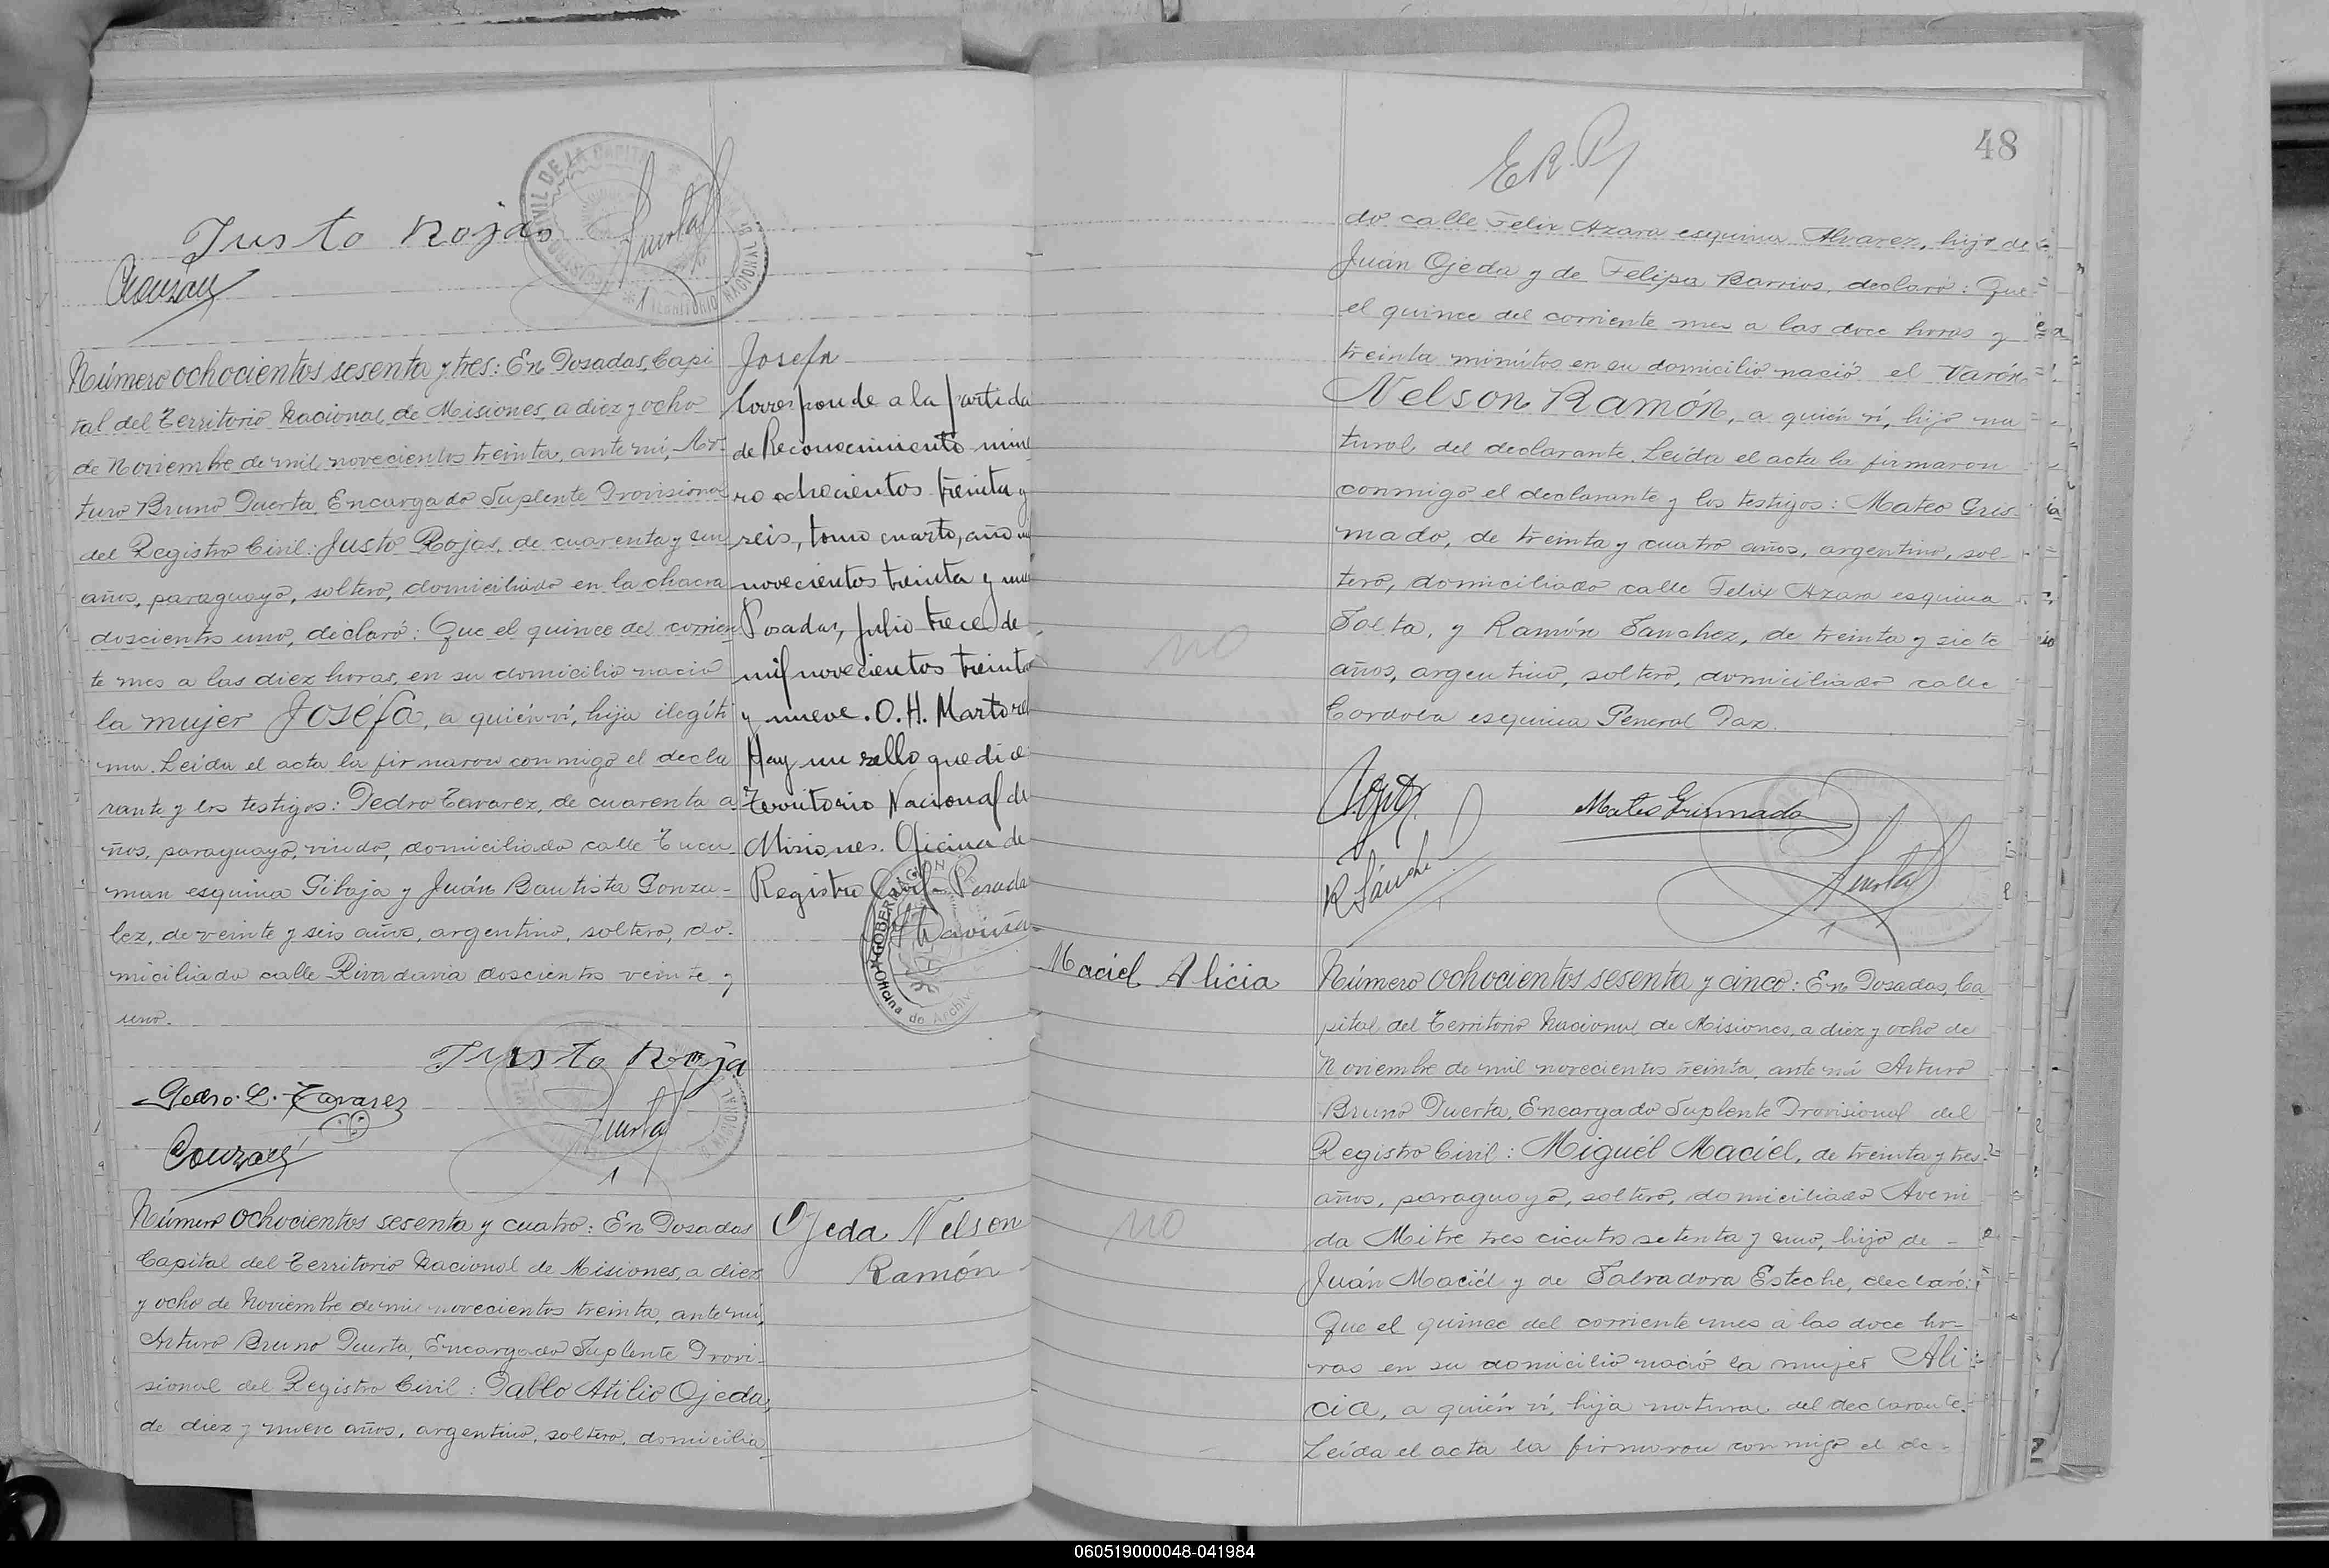 REGISTRO CIVIL DE LA CAPITAL * TERRITORIO NACIONAL
Justo Rojas
Puerta
Número ochocientos sesenta y tres: En Posadas, Capi
tal del Territorio Nacional de Misiones, a diez y ocho
de Noviembre de mil novecientos treinta, ante mí, Ar-
turo Bruno Puerta, Encargado Suplente Provisional
del Registro Civil: Justo Rojas, de cuarenta y un
años, paraguayo, soltero, domiciliado en la chacra
doscientos uno, declaró: Que el quince del corrien
te mes a las diez horas, en su domicilio nació
la mujer Josefa, a quién ví, hija ilegíti
ma. Leída el acta la firmaron conmigo el decla
rante y los testigos: Pedro Tavarez, de cuarenta a-
ños, paraguayo, viudo, domiciliado calle Tucu
man esquina Gibaja y Juán Bautista Gonza-
lez, de veinte y seis años, argentino, soltero, do-
miciliado calle Rivadavia doscientos veinte y
uno.
Justo Roja
Pedro. L. Tavarez
Puerta
Gonzalez
Josefa
Corresponde a la partida
de Reconocimiento núme
ro ochocientos treinta y
seis, tomo cuarto, año mil
novecientos treinta y nueve
Posadas, Julio trece de
mil novecientos treinta
y nueve. O. H. Martorel
Hay un sello que dice
Territorio Nacional de
Misiones. Oficina de
Registro Civil - Posadas
GOBERNACION
Oficina de Archivo
Número ochocientos sesenta y cuatro: En Posadas
Capital del Territorio Nacional de Misiones, a diez
y ocho de Noviembre de mil novecientos treinta, ante mí,
Arturo Bruno Puerta, Encargado Suplente Provi-
sional del Registro Civil: Pablo Atilio Ojeda,
de diez y nueve años, argentino, soltero, domicilia
Ojeda Nelson
Ramón
48
E.R.P.
do calle Felix Azara esquina Alvarez, hijo de
Juán Ojeda y de Felipa Barrios, declaró: Que
el quince del corriente mes a las doce horas y
treinta minútos en su domicilio nació el varón
Nelson Ramón, a quién ví, hijo na
tural del declarante. Leída el acta la firmaron
conmigo el declarante y los testigos: Mateo Gris-
mado, de treinta y cuatro años, argentino, sol-
tero, domiciliado calle Felix Azara esquina
Salta, y Ramón Sanchez, de treinta y siete
años, argentino, soltero, domiciliado calle
Cordoba esquina General Paz.
no
Mateo Grismado
R Sánchez
Puerta
Maciel Alicia
Número ochocientos sesenta y cinco: En Posadas, Ca
pital del Territorio Nacional de Misiones, a diez y ocho de
Noviembre de mil novecientos treinta, ante mí Arturo
Bruno Puerta, Encargado Suplente Provisional del
Registro Civil: Miguél Maciél, de treinta y tres
años, paraguayo, soltero, domiciliado Aveni
da Mitre tres cientos setenta y uno, hijo de -
Juán Maciél y de Salvadora Esteche, declaró:
Que el quince del corriente mes a las doce ho-
ras en su domicilio nació la mujer Ali
cia, a quién ví, hija natural del declarante.
Leída el acta la firmaron conmigo el de-
no
060519000048-041984